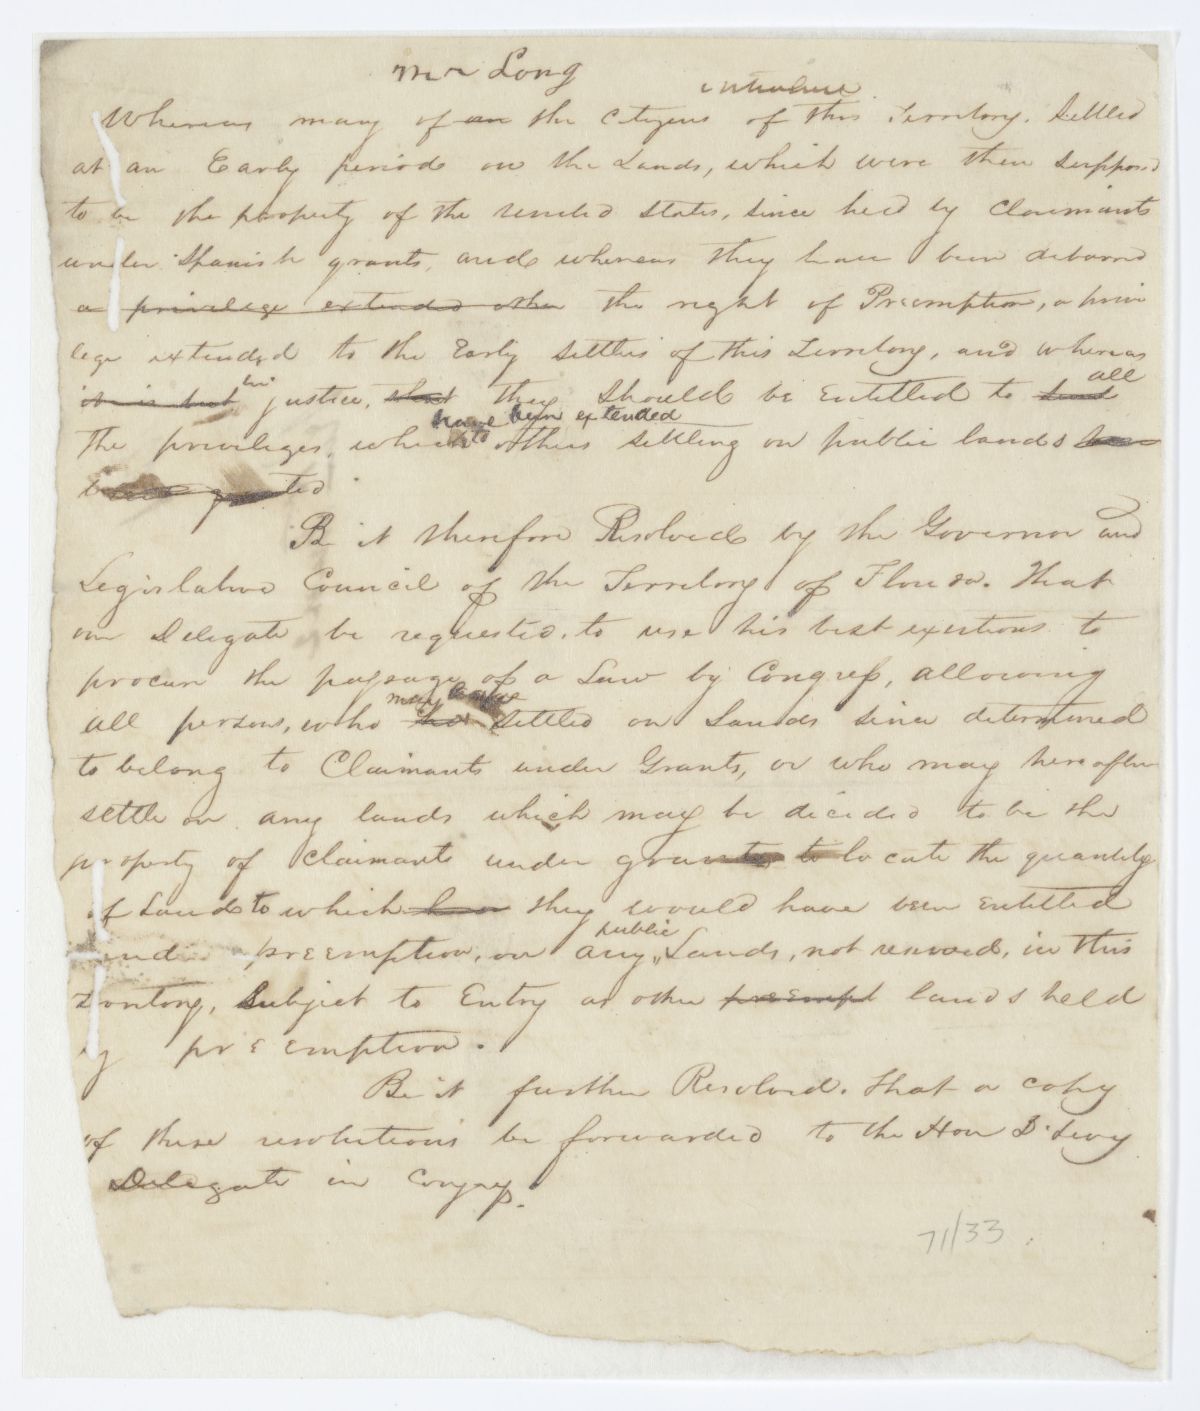 Mr Long
introduce
Whereas many of an the Citizens of this Territory. Settled
at an Early period on the Lands, which were then Supposed
to be the property of the United States, Since held by Claimants
under Spanish grants, and whereas they have been debarred
a privilege extended other the right of Preemption, a privi
lege extended to the Early Settlers of this Territory, and whereas
all
it is but in justice, that they Should be Entitled to
have been extended
The privileges, which to others settling on public lands have
been granted
Be it therefore Resolved by the Governor and
Legislative Council of the Territory of Florida. That
our Delegate be requested, to use his best exertions to
procure the passage of a Law by Congress, allowing
may have
all persons, who has settled on Lands since determined
to belong to Claimants under Grants, or who may hereafter
settle on any lands which may be decided to be the
property of Claimants under grants to locate the quantity
of Land to which they would have been Entitled
public
under preemption, on any Lands, not reserved, in this
Territory, Subject to Entry as other preempt lands held
by preemption.
Be it further Resolved. That a copy
of these resolutions be forwarded to the Hon D. Levy
Delegate in Congress.
71/33